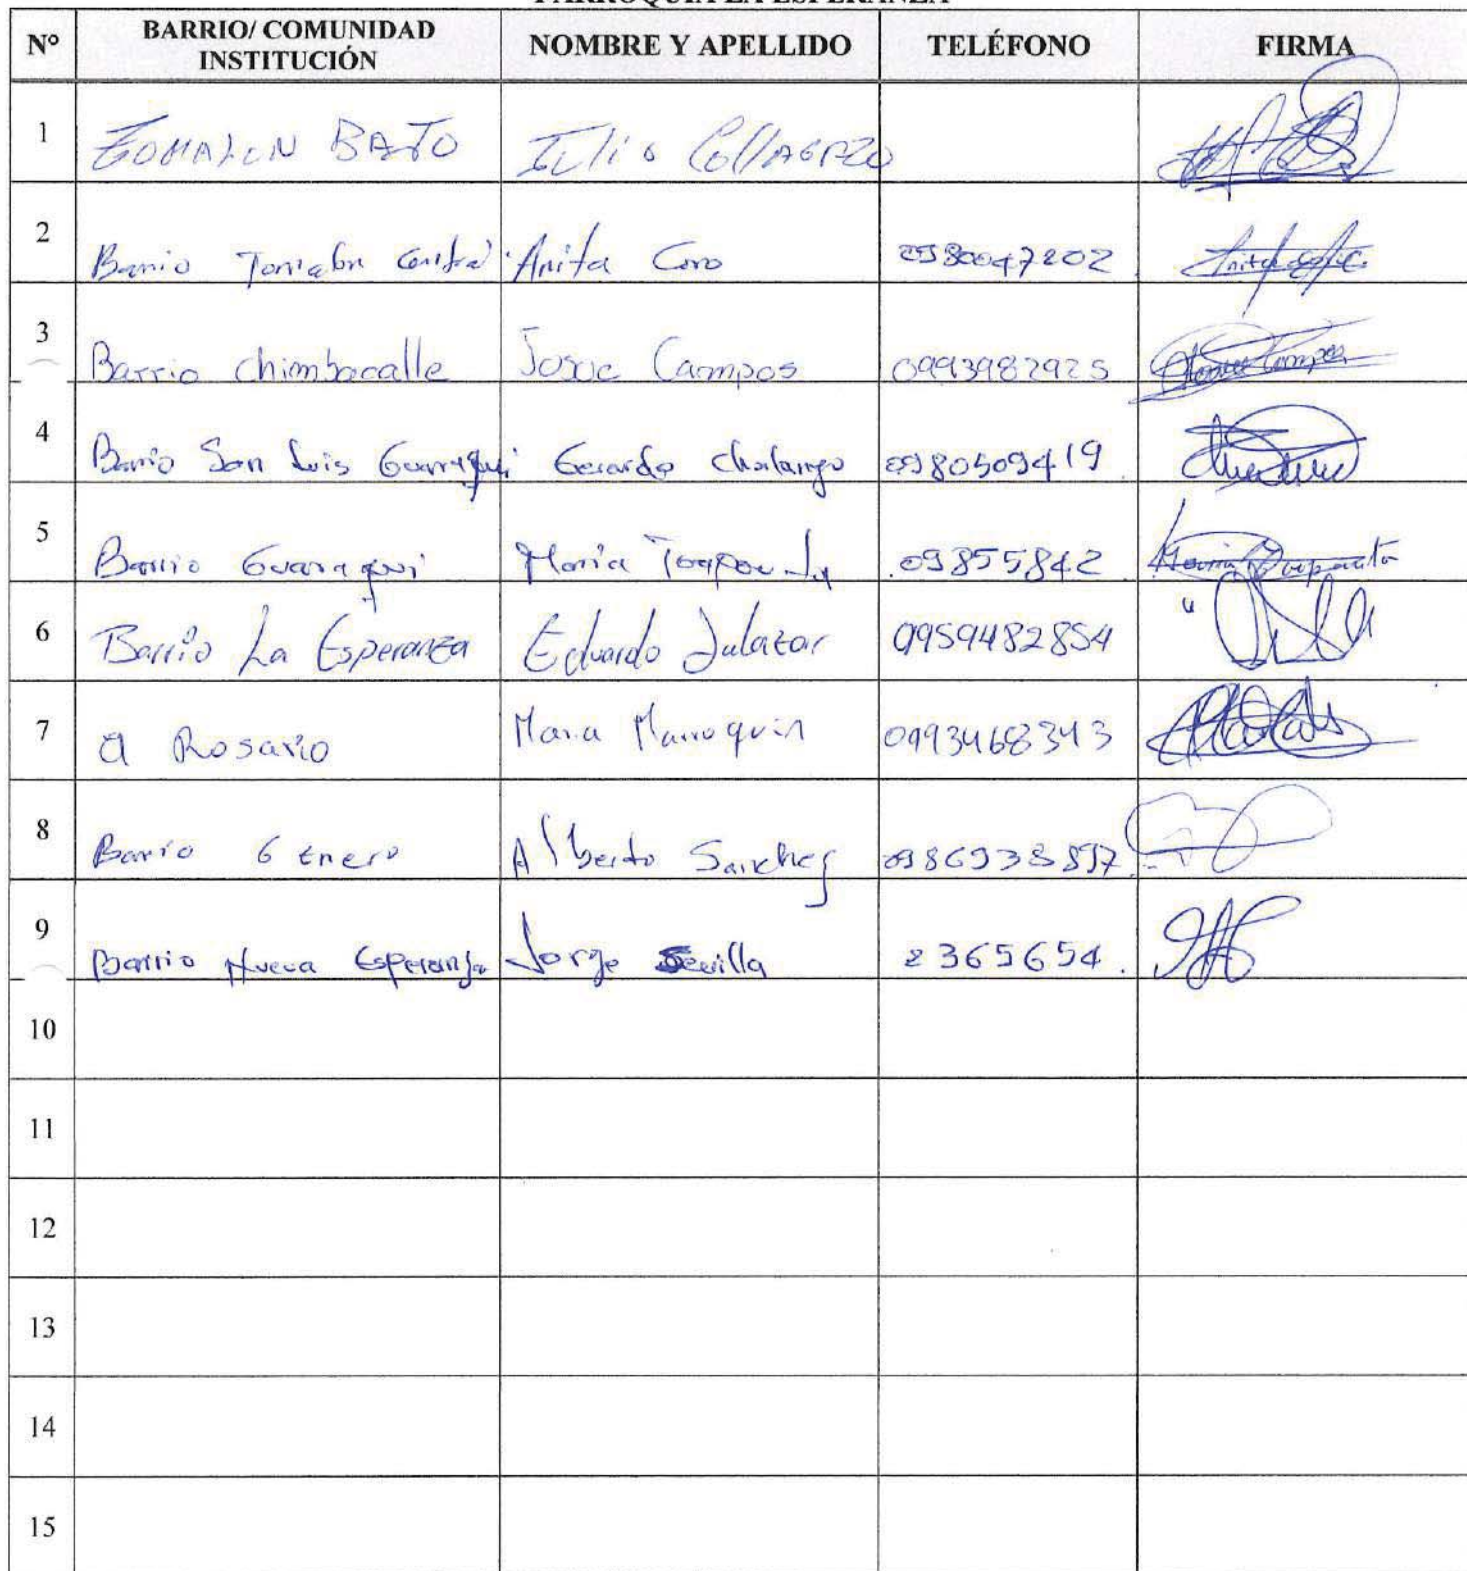 PARROQUIA LA ESPERANZA
N° BARRIO/ COMUNIDAD INSTITUCIÓN NOMBRE Y APELLIDO TELÉFONO FIRMA
1 BAJO Julio
2 Barrio Tomalon Central Anita Coro 0980047202
3 Barrio Chimbacalle Josue Campos 0993982925
4 Barrio San Luis Guaraqui Gerardo Cholango 0980509419
5 Barrio Guaraqui Maria 09855842
6 Barrio La Esperanza Eduardo Salazar 0959482854
7 El Rosario Maria Marroquin 0993468343
8 Barrio 6 Enero Alberto Sanchez 0986938897
9 Barrio Nueva Esperanza Jorge Sevilla 2365654.
10
11
12
13
14
15